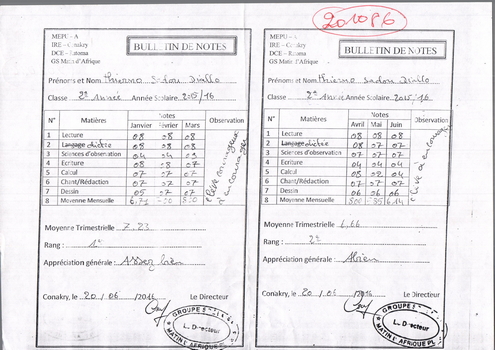 201096
MEPU - A
IRE – Conakry
DCE – Ratoma
GS Matin d'Afrique
BULLETIN DE NOTES
Prénoms et Nom Thierno Sadou Diallo
Classe 2e Année Année Scolaire 2015/16
N° Matières Notes Observation
Janvier Février Mars
1 Lecture 08 08 08
2 Langage dictée 08 08 08
3 Sciences d'observation 04 04 09
4 Ecriture 08 08 07
5 Calcul 07 07 07
6 Chant/Rédaction 07 07 07
7 Dessin 05 07 07
8 Moyenne Mensuelle 6,71
élève courageux à encourager
Moyenne Trimestrielle 7,23
Rang : 1er
Appréciation générale : Assez bien
Conakry, le 20 / 06 /2016 Le Directeur
GROUPE S
Le Directeur
MATIN D'AFRIQUE
MEPU - A
IRE – Conakry
DCE – Ratoma
GS Matin d'Afrique
BULLETIN DE NOTES
Prénoms et Nom Thierno Sadou Diallo
Classe 2e Année Année Scolaire 2015/16
N° Matières Notes Observation
Avril Mai Juin
1 Lecture 08 08 08
2 Langage dictée 08 08 08
3 Sciences d'observation 07 07 07
4 Ecriture 04 04 04
5 Calcul 08 02 04
6 Chant/Rédaction 07 07 07
7 Dessin 06 06 06
8 Moyenne Mensuelle 6,14
élève à encourager
Moyenne Trimestrielle 6,66
Rang : 2e
Appréciation générale : Abien
Conakry, le 20 / 06 /2016 Le Directeur
GROUPE S
Le Directeur
MATIN D'AFRIQUE